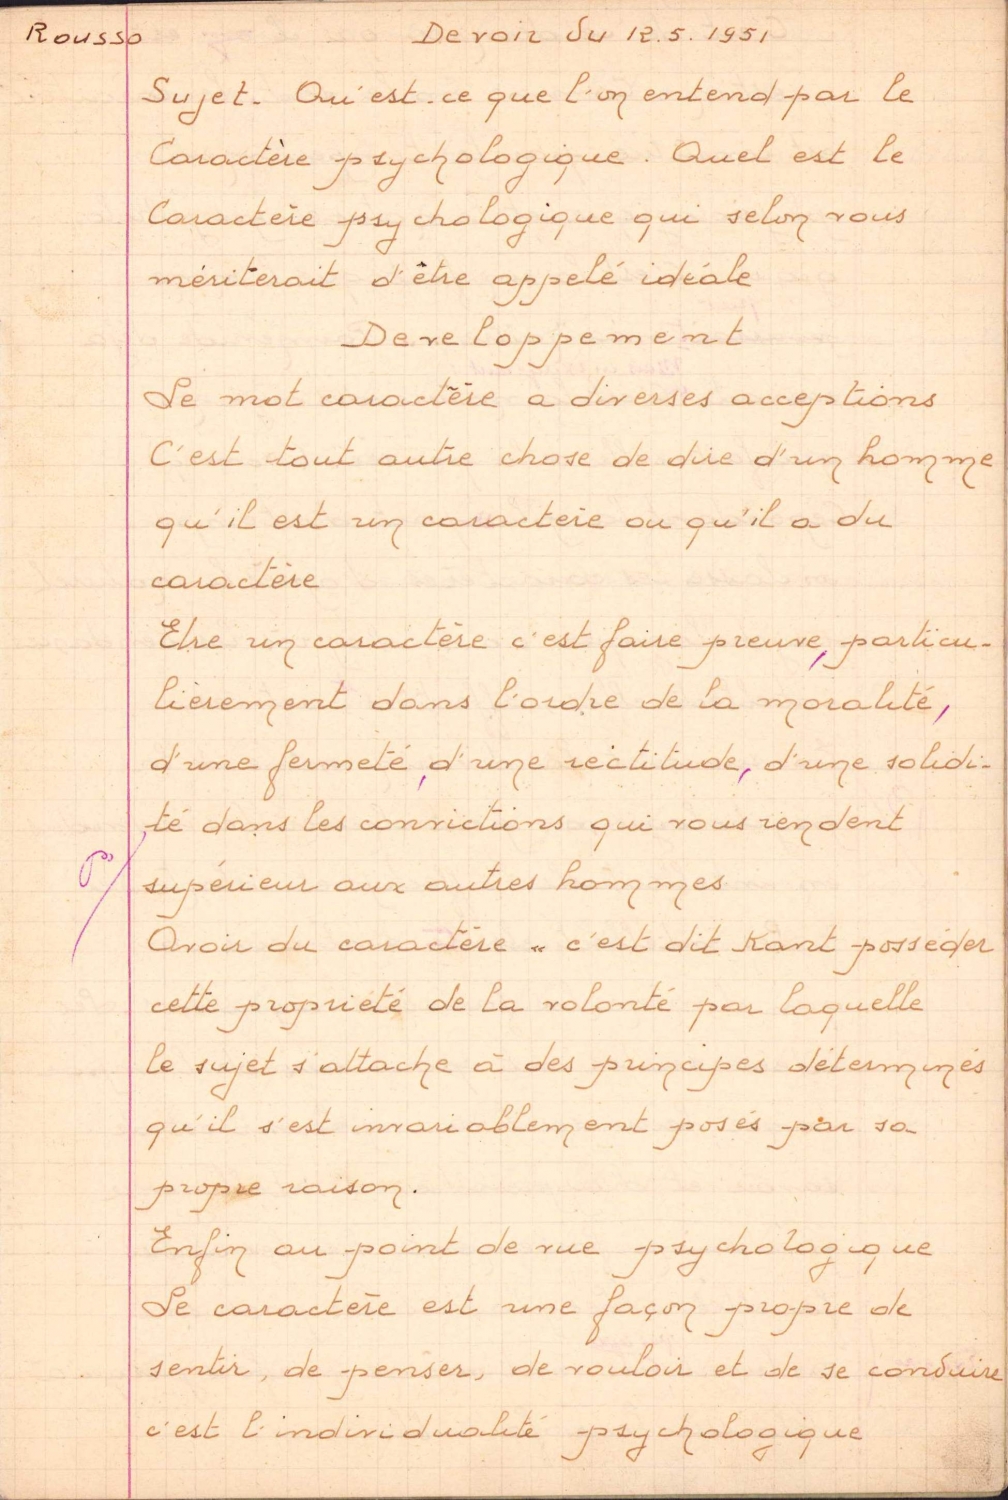 Rousso Devoir du 12.5.1951
Sujet. Qu'est-ce que l'on entend par le
Caractère psychologique. Quel est le
Caractère psychologique qui selon vous
mériterait d'être appelé idéale
Developpement
Le mot caractère a diverses acceptions
C'est tout autre chose de dire d'un homme
qu'il est un caractère ou qu'il a du
caractère
Etre un caractère c'est faire preuve, particu-
lièrement dans l'ordre de la moralité,
d'une fermeté, d'une rectitude, d'une solidi-
té dans les convictions qui vous rendent
supérieur aux autres hommes
Avoir du caractère " c'est dit Kant posséder
cette propriété de la volonté par laquelle
le sujet s'attache à des principes déterminés
qu'il s'est invariablement posés par sa
propre raison.
Enfin au point de vue psychologique
Le caractère est une façon propre de
sentir, de penser, de vouloir et de se conduire
c'est l'individualité psychologique